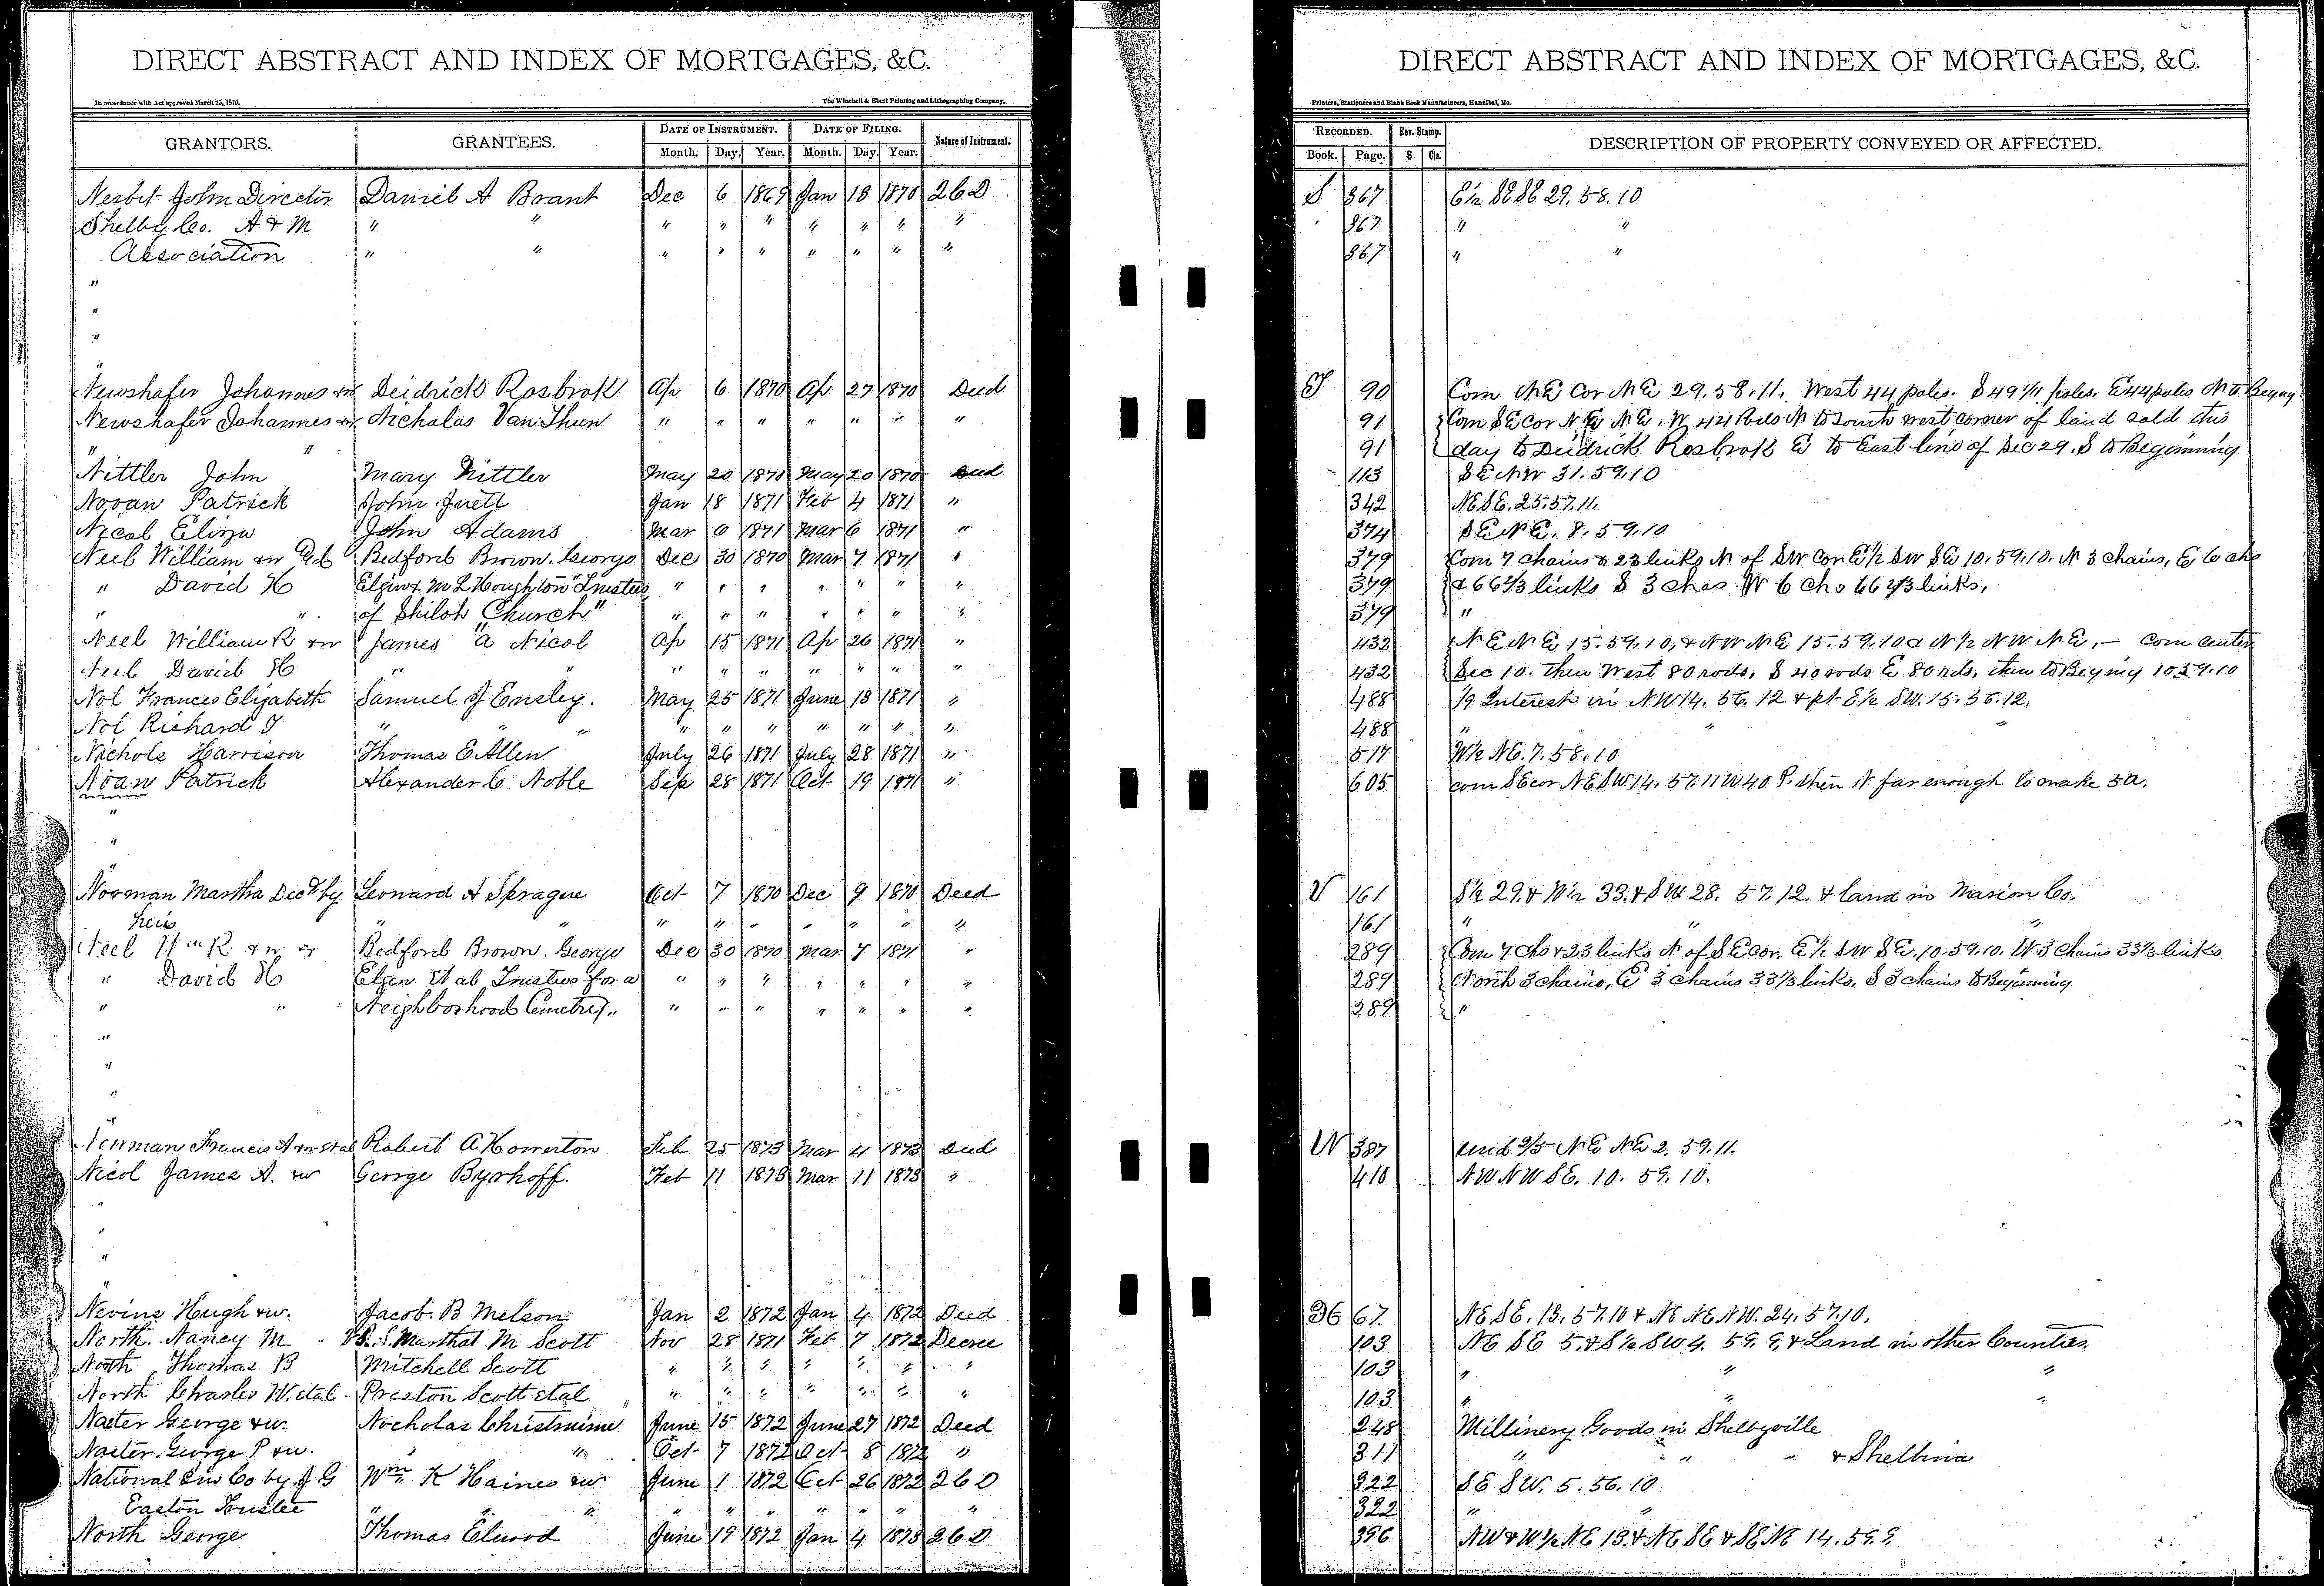 DIRECT ABSTRACT AND INDEX OF MORTGAGES, &C.
In accordance with Act approved March 25, 1870.
The Winchell & Ebert Printing and Lithographing Company,
GRANTORS. GRANTEES. DATE OF INSTRUMENT. DATE OF FILING. Nature of Instrument.
Month. Day. Year. Month. Day. Year.
Nesbit John Director Daniel A Brant Dec 6 1869 Jan 18 1870 2 6 D
Shelby Co. A & M " " " " " " " " "
Association " " " " " " " " "
"
"
"
Newshafer Johannes Deidrick Rosbrok Ap 6 1870 Ap 27 1870 Deed
Newshafer Johannes Nicholas Van Thun " " " " " " "
"
Nittler John Mary Nittler May 20 1870 May 20 1870 Deed
Novan Patrick John Juett Jan 18 1871 Feb 4 1871 "
Nicol Eliza John Adams Mar 6 1871 Mar 6 1871 "
Neel William Bedford Brown. George Dec 30 1870 Mar 7 1871 "
" David H Elgin & M L Houghton Trustees " " " " " " "
" " of Shiloh Church" " " " " " " "
Neel William R James A Nicol Ap 15 1871 Ap 26 1871 "
Neel David H " " " " " " " " "
Nol Frances Elizabeth Samuel J Ensley. May 25 1871 June 13 1871 "
Nol Richard J " " " " " " " " "
Nichols Harrison Thomas E Allen July 26 1871 July 28 1871 "
Noan Patrick Alexander C Noble Sep 28 1871 Oct 19 1871 "
"
"
"
Norman Martha Decd by Leonard A Sprague Oct 7 1870 Dec 9 1870 Deed
heirs " " " " " " " " "
Neel Wm R & w Bedford Brown. George Dec 30 1870 Mar 7 1871 "
" David H Elgin et al Trustees for a " " " " " " "
" " Neighborhood Cemetry " " " " " " " "
"
"
"
"
Francis A Robert A Howerton Feb 25 1873 Mar 4 1873 Deed
Nicol James A. & w George Byrhoff. Feb 11 1873 Mar 11 1873 "
"
"
"
"
Nevins Hugh & w. Jacob. B Melson Jan 2 1872 Jan 4 1872 Deed
North. Nancy M Marthal M Scott Nov 28 1871 Feb 7 1872 Decree
North Thomas B Mitchell Scott " " " " " " "
North Charles W. etal Preston Scott etal " " " " " " "
Naeter George & w. Nocholas Christmimn June 15 1872 June 27 1872 Deed
Naeter George P & w. " " Oct 7 1872 Oct 8 1872 "
National Ins Co by J G Wm K Haines & w June 1 1872 Oct 26 1872 2 6 D
Easton Trustee " " " " " " " " "
North George Thomas Elwood June 19 1872 Jan 4 1873 2 6 D
DIRECT ABSTRACT AND INDEX OF MORTGAGES, &C.
Printers, Stationers and Blank Book Manufacturers, Hannibal, Mo.
RECORDED. Rev. Stamp. DESCRIPTION OF PROPERTY CONVEYED OR AFFECTED.
Book. Page. $ Cts.
S 367 E½ SE SE 29. 58. 10
" 367 " "
367 " "
T 90 Com NE Cor NE 29. 58. 11. West 44 poles. S 49 1/11 poles. E 44 poles N to Begng
91 Com SE Cor NE NE. W 44 Rods N to South west corner of land sold this
91 day to Deidrick Rosbrok E to East line of Sec 29. S to Beginning
113 SE NW 31. 59. 10
342 NE SE. 25. 57. 11.
374 SE NE. 8. 59. 10
379 Com 7 chains & 23 links N of SW Cor E½ SW SE 10. 59. 10. N 3 chains, E 6 chs
379 & 66 2/3 links S 3 chas W 6 Chs 66 2/3 links,
379 "
432 NE NE 15. 59. 10, & NW NE 15. 59. 10 & N½ NW NE, — Com Center
432 Sec 10. then West 80 rods, S 40 rods E 80 rds, then to Begnig 10. 59. 10
488 1/9 Interest in NW 14. 56. 12 & pt E½ SW. 15. 56. 12.
488 " "
517 W½ NE. 7. 58. 10
605 com SE cor NE SW. 14. 57. 11 W 40 P. then N far enough to make 5 A.
V 161 S½ 29. & W½ 33. & SW 28. 57. 12. & land in Marion Co.
161 " " "
289 Com 7 Chs & 23 links N of SE Cor. E½ SW SE. 10. 59. 10. W 3 chains 33 1/3 links
289 North 3 chains, E 3 chains 33 1/3 links, S 3 chains to Beginning
289 "
W 387 und 2/5 NE NE 2. 59. 11.
410 NW NW SE. 10. 59. 10.
36 67 NE SE. 13. 57. 10 & NE NE NW. 24. 57. 10.
103 NE SE 5. & S½ SW 4. 59. 9, & Land in other Counties
103 " " "
103 " " "
248 Millinery Goods in Shelbyville
311 " " " & Shelbina
322 SE SW. 5. 56. 10
322 "
396 NW & W½ NE 13. & NE SE & SE NE 14. 59. 9